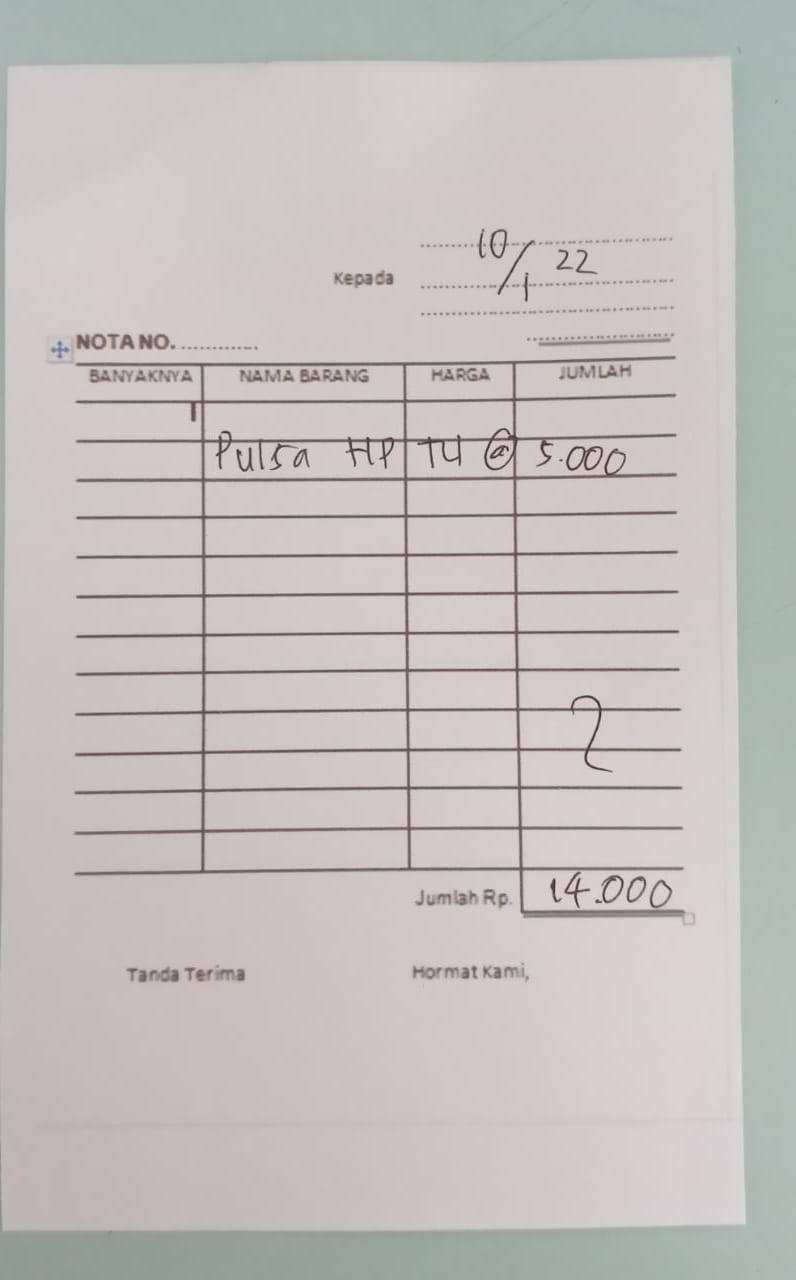 10/1 22
Kepada
NOTA NO. ............
BANYAKNYA NAMA BARANG HARGA JUMLAH
Pulsa HP TU @ 5.000
Jumlah Rp. 14.000
Tanda Terima Hormat Kami,